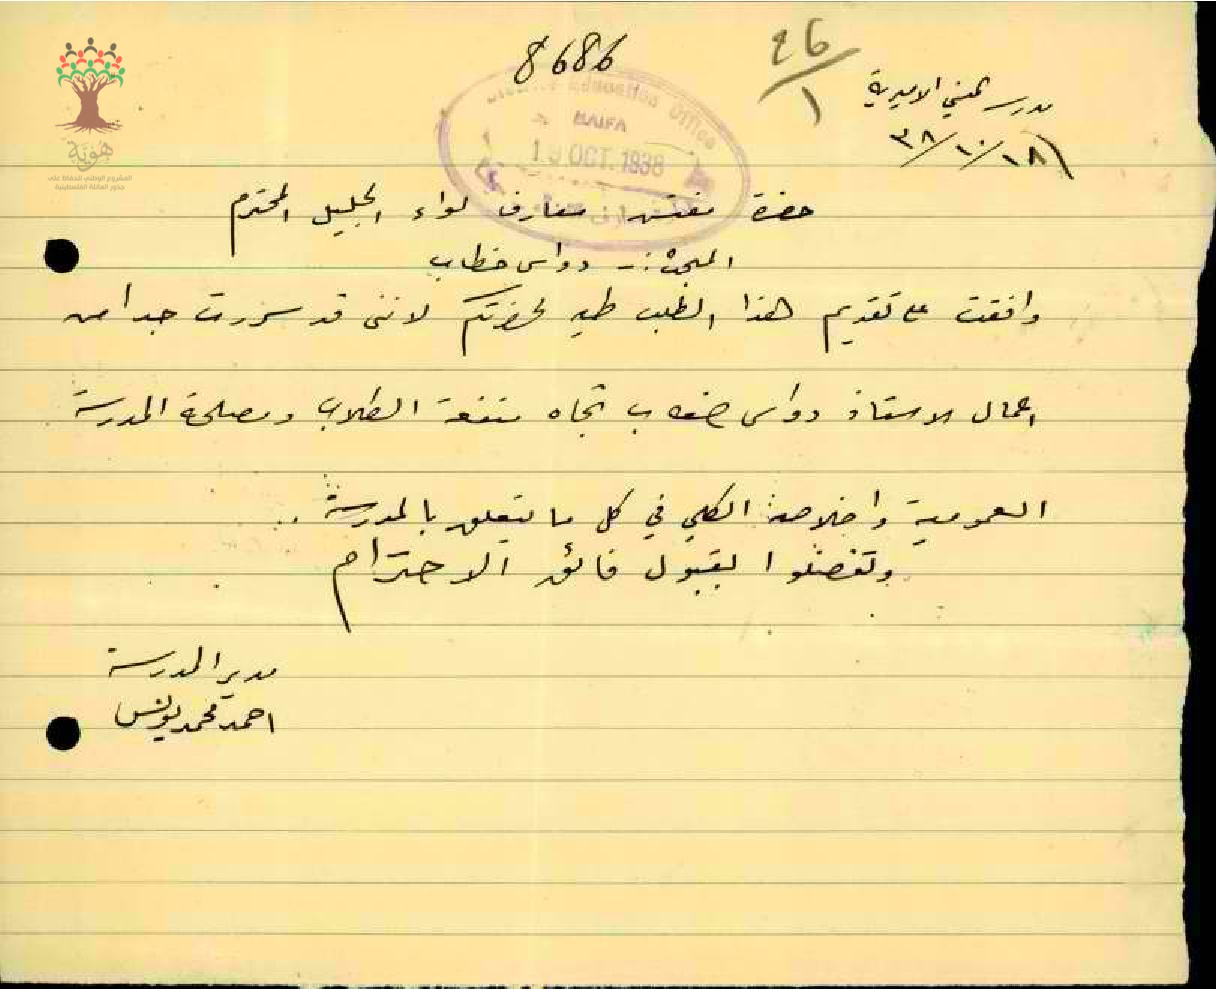 8686
٤٦/١
مدرسة الاميرية
١٨/١٠/٣٨
District Education Office
HAIFA
19 OCT. 1938
هوية
المشروع الوطني للحفاظ على
جذور العائلة الفلسطينية
حضرة مفتش معارف لواء الجليل المحترم
المبحث :- دواس خطاب
وافقت على تقديم هذا الطلب طيه لحضرتكم لانني قد سررت جدا من
اعمال الاستاذ دواس خطاب تجاه منفعة الطلاب ومصلحة المدرسة
العمومية واخلاصه الكلي في كل ما يتعلق بالمدرسة ..
وتفضلوا بقبول فائق الاحترام
مدير المدرسة
احمد محمد يونس